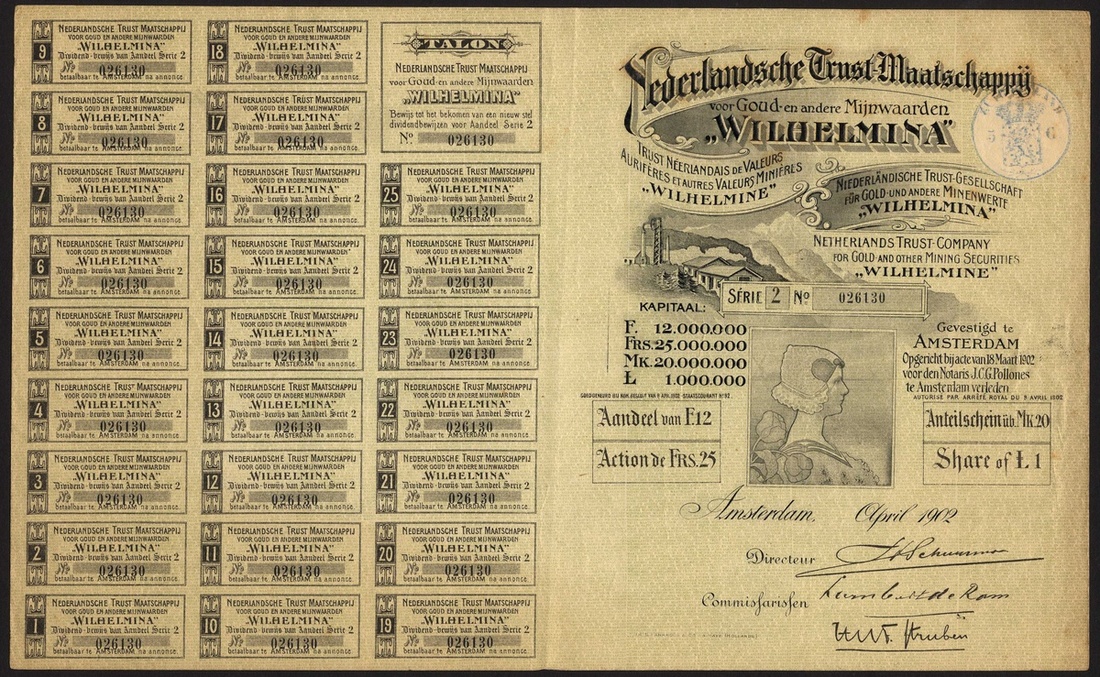 9
NEDERLANDSCHE TRUST MAATSCHAPPIJ
VOOR GOUD EN ANDERE MIJNWAARDEN
„WILHELMINA”
Dividend-bewijs van Aandeel Serie 2
No 026130
betaalbaar te AMSTERDAM na annonce.
8
NEDERLANDSCHE TRUST MAATSCHAPPIJ
VOOR GOUD EN ANDERE MIJNWAARDEN
„WILHELMINA”
Dividend-bewijs van Aandeel Serie 2
No 026130
betaalbaar te AMSTERDAM na annonce.
7
NEDERLANDSCHE TRUST MAATSCHAPPIJ
VOOR GOUD EN ANDERE MIJNWAARDEN
„WILHELMINA”
Dividend-bewijs van Aandeel Serie 2
No 026130
betaalbaar te AMSTERDAM na annonce.
6
NEDERLANDSCHE TRUST MAATSCHAPPIJ
VOOR GOUD EN ANDERE MIJNWAARDEN
„WILHELMINA”
Dividend-bewijs van Aandeel Serie 2
No 026130
betaalbaar te AMSTERDAM na annonce.
5
NEDERLANDSCHE TRUST MAATSCHAPPIJ
VOOR GOUD EN ANDERE MIJNWAARDEN
„WILHELMINA”
Dividend-bewijs van Aandeel Serie 2
No 026130
betaalbaar te AMSTERDAM na annonce.
4
NEDERLANDSCHE TRUST MAATSCHAPPIJ
VOOR GOUD EN ANDERE MIJNWAARDEN
„WILHELMINA”
Dividend-bewijs van Aandeel Serie 2
No 026130
betaalbaar te AMSTERDAM na annonce.
3
NEDERLANDSCHE TRUST MAATSCHAPPIJ
VOOR GOUD EN ANDERE MIJNWAARDEN
„WILHELMINA”
Dividend-bewijs van Aandeel Serie 2
No 026130
betaalbaar te AMSTERDAM na annonce.
2
NEDERLANDSCHE TRUST MAATSCHAPPIJ
VOOR GOUD EN ANDERE MIJNWAARDEN
„WILHELMINA”
Dividend-bewijs van Aandeel Serie 2
No 026130
betaalbaar te AMSTERDAM na annonce.
1
NEDERLANDSCHE TRUST MAATSCHAPPIJ
VOOR GOUD EN ANDERE MIJNWAARDEN
„WILHELMINA”
Dividend-bewijs van Aandeel Serie 2
No 026130
betaalbaar te AMSTERDAM na annonce.
18
NEDERLANDSCHE TRUST MAATSCHAPPIJ
VOOR GOUD EN ANDERE MIJNWAARDEN
„WILHELMINA”
Dividend-bewijs van Aandeel Serie 2
No 026130
betaalbaar te AMSTERDAM na annonce.
17
NEDERLANDSCHE TRUST MAATSCHAPPIJ
VOOR GOUD EN ANDERE MIJNWAARDEN
„WILHELMINA”
Dividend-bewijs van Aandeel Serie 2
No 026130
betaalbaar te AMSTERDAM na annonce.
16
NEDERLANDSCHE TRUST MAATSCHAPPIJ
VOOR GOUD EN ANDERE MIJNWAARDEN
„WILHELMINA”
Dividend-bewijs van Aandeel Serie 2
No 026130
betaalbaar te AMSTERDAM na annonce.
15
NEDERLANDSCHE TRUST MAATSCHAPPIJ
VOOR GOUD EN ANDERE MIJNWAARDEN
„WILHELMINA”
Dividend-bewijs van Aandeel Serie 2
No 026130
betaalbaar te AMSTERDAM na annonce.
14
NEDERLANDSCHE TRUST MAATSCHAPPIJ
VOOR GOUD EN ANDERE MIJNWAARDEN
„WILHELMINA”
Dividend-bewijs van Aandeel Serie 2
No 026130
betaalbaar te AMSTERDAM na annonce.
13
NEDERLANDSCHE TRUST MAATSCHAPPIJ
VOOR GOUD EN ANDERE MIJNWAARDEN
„WILHELMINA”
Dividend-bewijs van Aandeel Serie 2
No 026130
betaalbaar te AMSTERDAM na annonce.
12
NEDERLANDSCHE TRUST MAATSCHAPPIJ
VOOR GOUD EN ANDERE MIJNWAARDEN
„WILHELMINA”
Dividend-bewijs van Aandeel Serie 2
No 026130
betaalbaar te AMSTERDAM na annonce.
11
NEDERLANDSCHE TRUST MAATSCHAPPIJ
VOOR GOUD EN ANDERE MIJNWAARDEN
„WILHELMINA”
Dividend-bewijs van Aandeel Serie 2
No 026130
betaalbaar te AMSTERDAM na annonce.
10
NEDERLANDSCHE TRUST MAATSCHAPPIJ
VOOR GOUD EN ANDERE MIJNWAARDEN
„WILHELMINA”
Dividend-bewijs van Aandeel Serie 2
No 026130
betaalbaar te AMSTERDAM na annonce.
TALON
NEDERLANDSCHE TRUST MAATSCHAPPIJ
voor Goud-en andere Mijnwaarden
„WILHELMINA”
Bewijs tot het bekomen van een nieuw stel
dividendbewijzen voor Aandeel Serie 2
No 026130
25
NEDERLANDSCHE TRUST MAATSCHAPPIJ
VOOR GOUD EN ANDERE MIJNWAARDEN
„WILHELMINA”
Dividend-bewijs van Aandeel Serie 2
No 026130
betaalbaar te AMSTERDAM na annonce.
24
NEDERLANDSCHE TRUST MAATSCHAPPIJ
VOOR GOUD EN ANDERE MIJNWAARDEN
„WILHELMINA”
Dividend-bewijs van Aandeel Serie 2
No 026130
betaalbaar te AMSTERDAM na annonce.
23
NEDERLANDSCHE TRUST MAATSCHAPPIJ
VOOR GOUD EN ANDERE MIJNWAARDEN
„WILHELMINA”
Dividend-bewijs van Aandeel Serie 2
No 026130
betaalbaar te AMSTERDAM na annonce.
22
NEDERLANDSCHE TRUST MAATSCHAPPIJ
VOOR GOUD EN ANDERE MIJNWAARDEN
„WILHELMINA”
Dividend-bewijs van Aandeel Serie 2
No 026130
betaalbaar te AMSTERDAM na annonce.
21
NEDERLANDSCHE TRUST MAATSCHAPPIJ
VOOR GOUD EN ANDERE MIJNWAARDEN
„WILHELMINA”
Dividend-bewijs van Aandeel Serie 2
No 026130
betaalbaar te AMSTERDAM na annonce.
20
NEDERLANDSCHE TRUST MAATSCHAPPIJ
VOOR GOUD EN ANDERE MIJNWAARDEN
„WILHELMINA”
Dividend-bewijs van Aandeel Serie 2
No 026130
betaalbaar te AMSTERDAM na annonce.
19
NEDERLANDSCHE TRUST MAATSCHAPPIJ
VOOR GOUD EN ANDERE MIJNWAARDEN
„WILHELMINA”
Dividend-bewijs van Aandeel Serie 2
No 026130
betaalbaar te AMSTERDAM na annonce.
Nederlandsche Trust-Maatschappij
voor Goud-en andere Mijnwaarden
„WILHELMINA”
TRUST NÉERLANDAIS DE VALEURS
AURIFÈRES ET AUTRES VALEURS MINIÈRES
„WILHELMINE”
NIEDERLÄNDISCHE TRUST-GESELLSCHAFT
FÜR GOLD-UND ANDERE MINENWERTE
„WILHELMINA”
NETHERLANDS TRUST-COMPANY
FOR GOLD AND OTHER MINING SECURITIES
„WILHELMINE”
SÉRIE 2 No 026130
KAPITAAL:
F. 12.000.000
FRS. 25.000.000
MK. 20.000.000
£ 1.000.000
Gevestigd te
AMSTERDAM
Opgericht bij acte van 18 Maart 1902
voor den Notaris J.C.G. Pollones
te Amsterdam verleden
AUTORISÉ PAR ARRÊTÉ ROYAL DU 9 AVRIL 1902
Aandeel van F. 12
Action de FRS. 25
Anteilschein üb. MK. 20
Share of £ 1
Amsterdam, April 1902
Directeur
Commissarissen